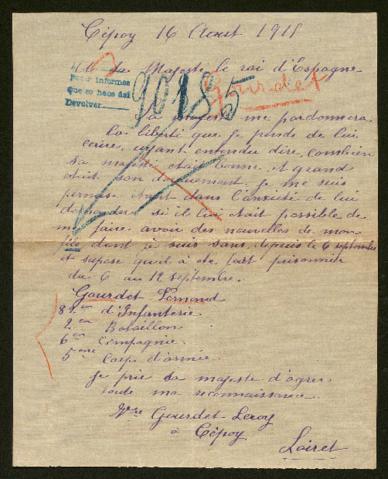 Cépoy 16 Aout 1915
A Sa Majesté le roi d'Espagne
pedir informes
que se hace así
Devolver
90185
Gourdet
Sa majesté me pardonnera
la liberté que je prends de lui
écrire, ayant entendu dire, combien
sa majesté était bonne, et grand
était son dévouement, je me suis
permise dans l'anxiété de lui
demander si il lui était possible de
me faire avoir des nouvelles de mon
fils dont je suis sans, depuis le 6 septembre
et supose qu'il a été fait prisonnier
du 6 au 12 septembre.
Gourdet Fernand
82eme d'Infanterie
2eme Bataillon
6eme Compagnie
5eme Corps d'armée
Je prie sa majesté d'agréer
toute ma reconnaissance
Gourdet-Leroy
à Cépoy
Loiret